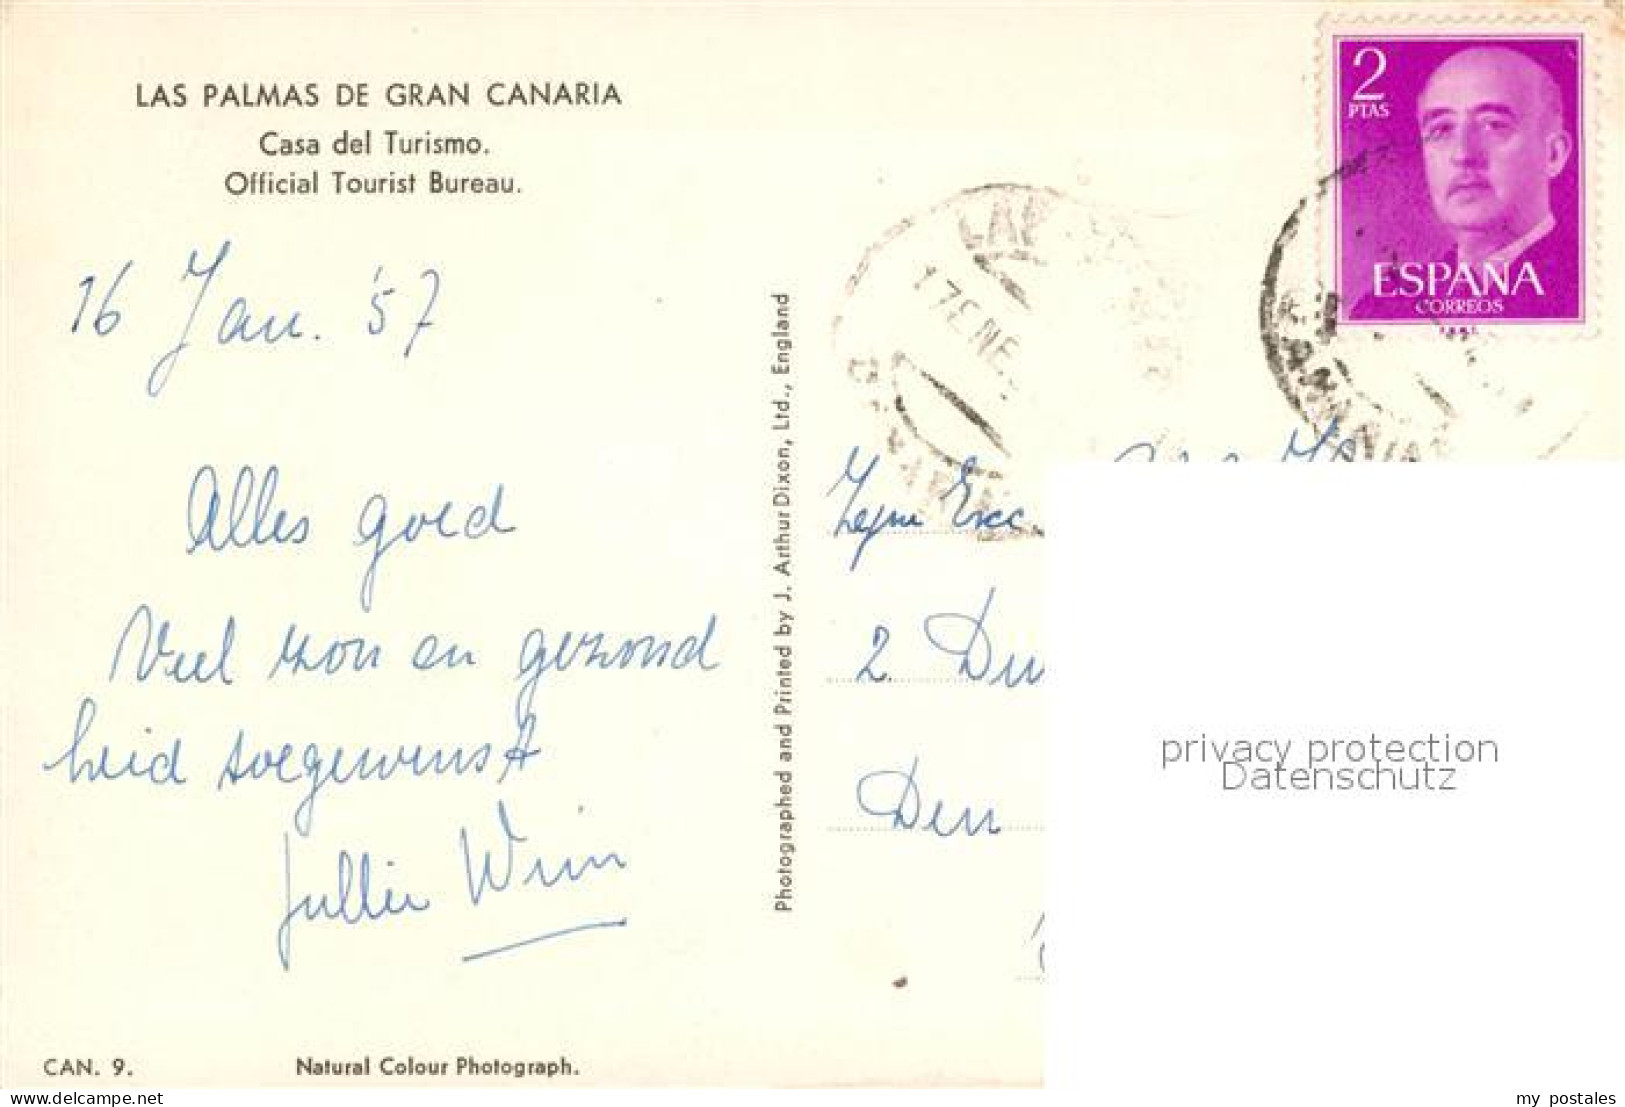 LAS PALMAS DE GRAN CANARIA
Casa del Turismo.
Official Tourist Bureau.
16 Jan. '57
Alles goed
Veel zon en gezond
heid toegewenst
Jullie Wim
CAN. 9.
Natural Colour Photograph.
Photographed and Printed by J. Arthur Dixon, Ltd., England
2
PTAS
ESPAÑA
CORREOS
LAS
17 ENE
Exc
2. Du
Den
privacy protection
Datenschutz
www.delcampe.net
my postales